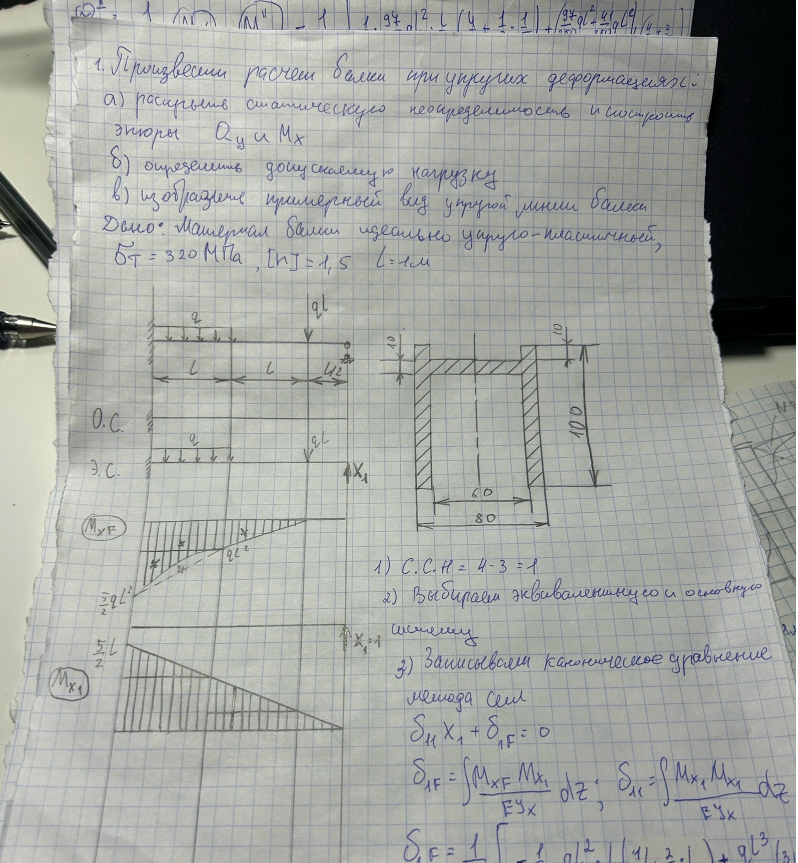 1. Произвести расчет балки при упругих деформациях:
а) раскрыть статическую неопределимость и построить
эпюры Qy и Mx
б) определить допускаемую нагрузку
в) изобразить примерный вид упругой линии балки
Дано: Материал балки идеально упруго-пластичный,
бт = 320 МПа, [n] = 1,5 l = 1м
q
ql
l
l
l/2
О.С.
Э.С.
q
ql
X₁
MxF
ql²
5/2 l
X₁=1
Mx₁
10
10
100
60
80
1) С.С.Н = 4-3 = 1
2) Выбираем эквивалентную и основную
систему
3) Записываем каноническое уравнение
метода сил
δ₁₁ X₁ + δ₁F = 0
δ₁F = ∫ MxF Mx₁ / EYx dz ; δ₁₁ = ∫ Mx₁ Mx₁ / EYx dz
δ₁F = 1